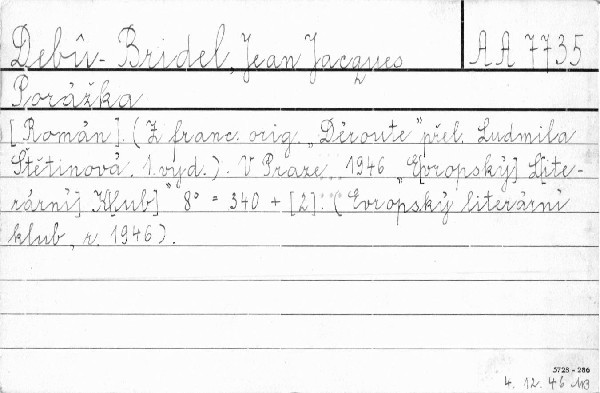 Debû-Bridel, Jean Jacques AA 7735
Porážka
[Román]. (Z franc. orig. „Déroute" přel. Ludmila
Štětinová. 1. vyd.). V Praze 1946 „E[vropský] L[ite-
rární] K[lub]" 8° = 340 + [2]. (Evropský literární
klub, r. 1946).
5728 - 286
4. 12. 46